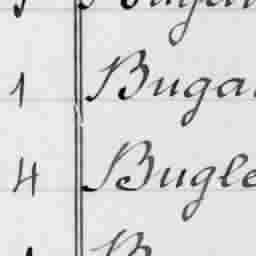 1 Buga
4 Bugle